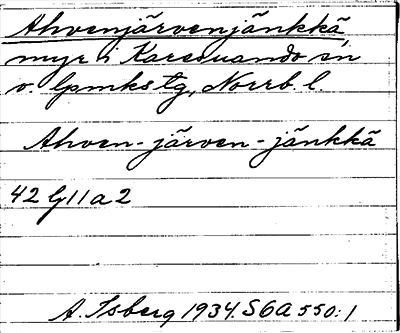 Ahvenjärvenjänkkä,
myr i Karesuando sn
v. lpmks tg, Norrb. l.
Ahven-järven-jänkkä
42 G 11 a 2
A. Isberg 1934. S6A 550:1